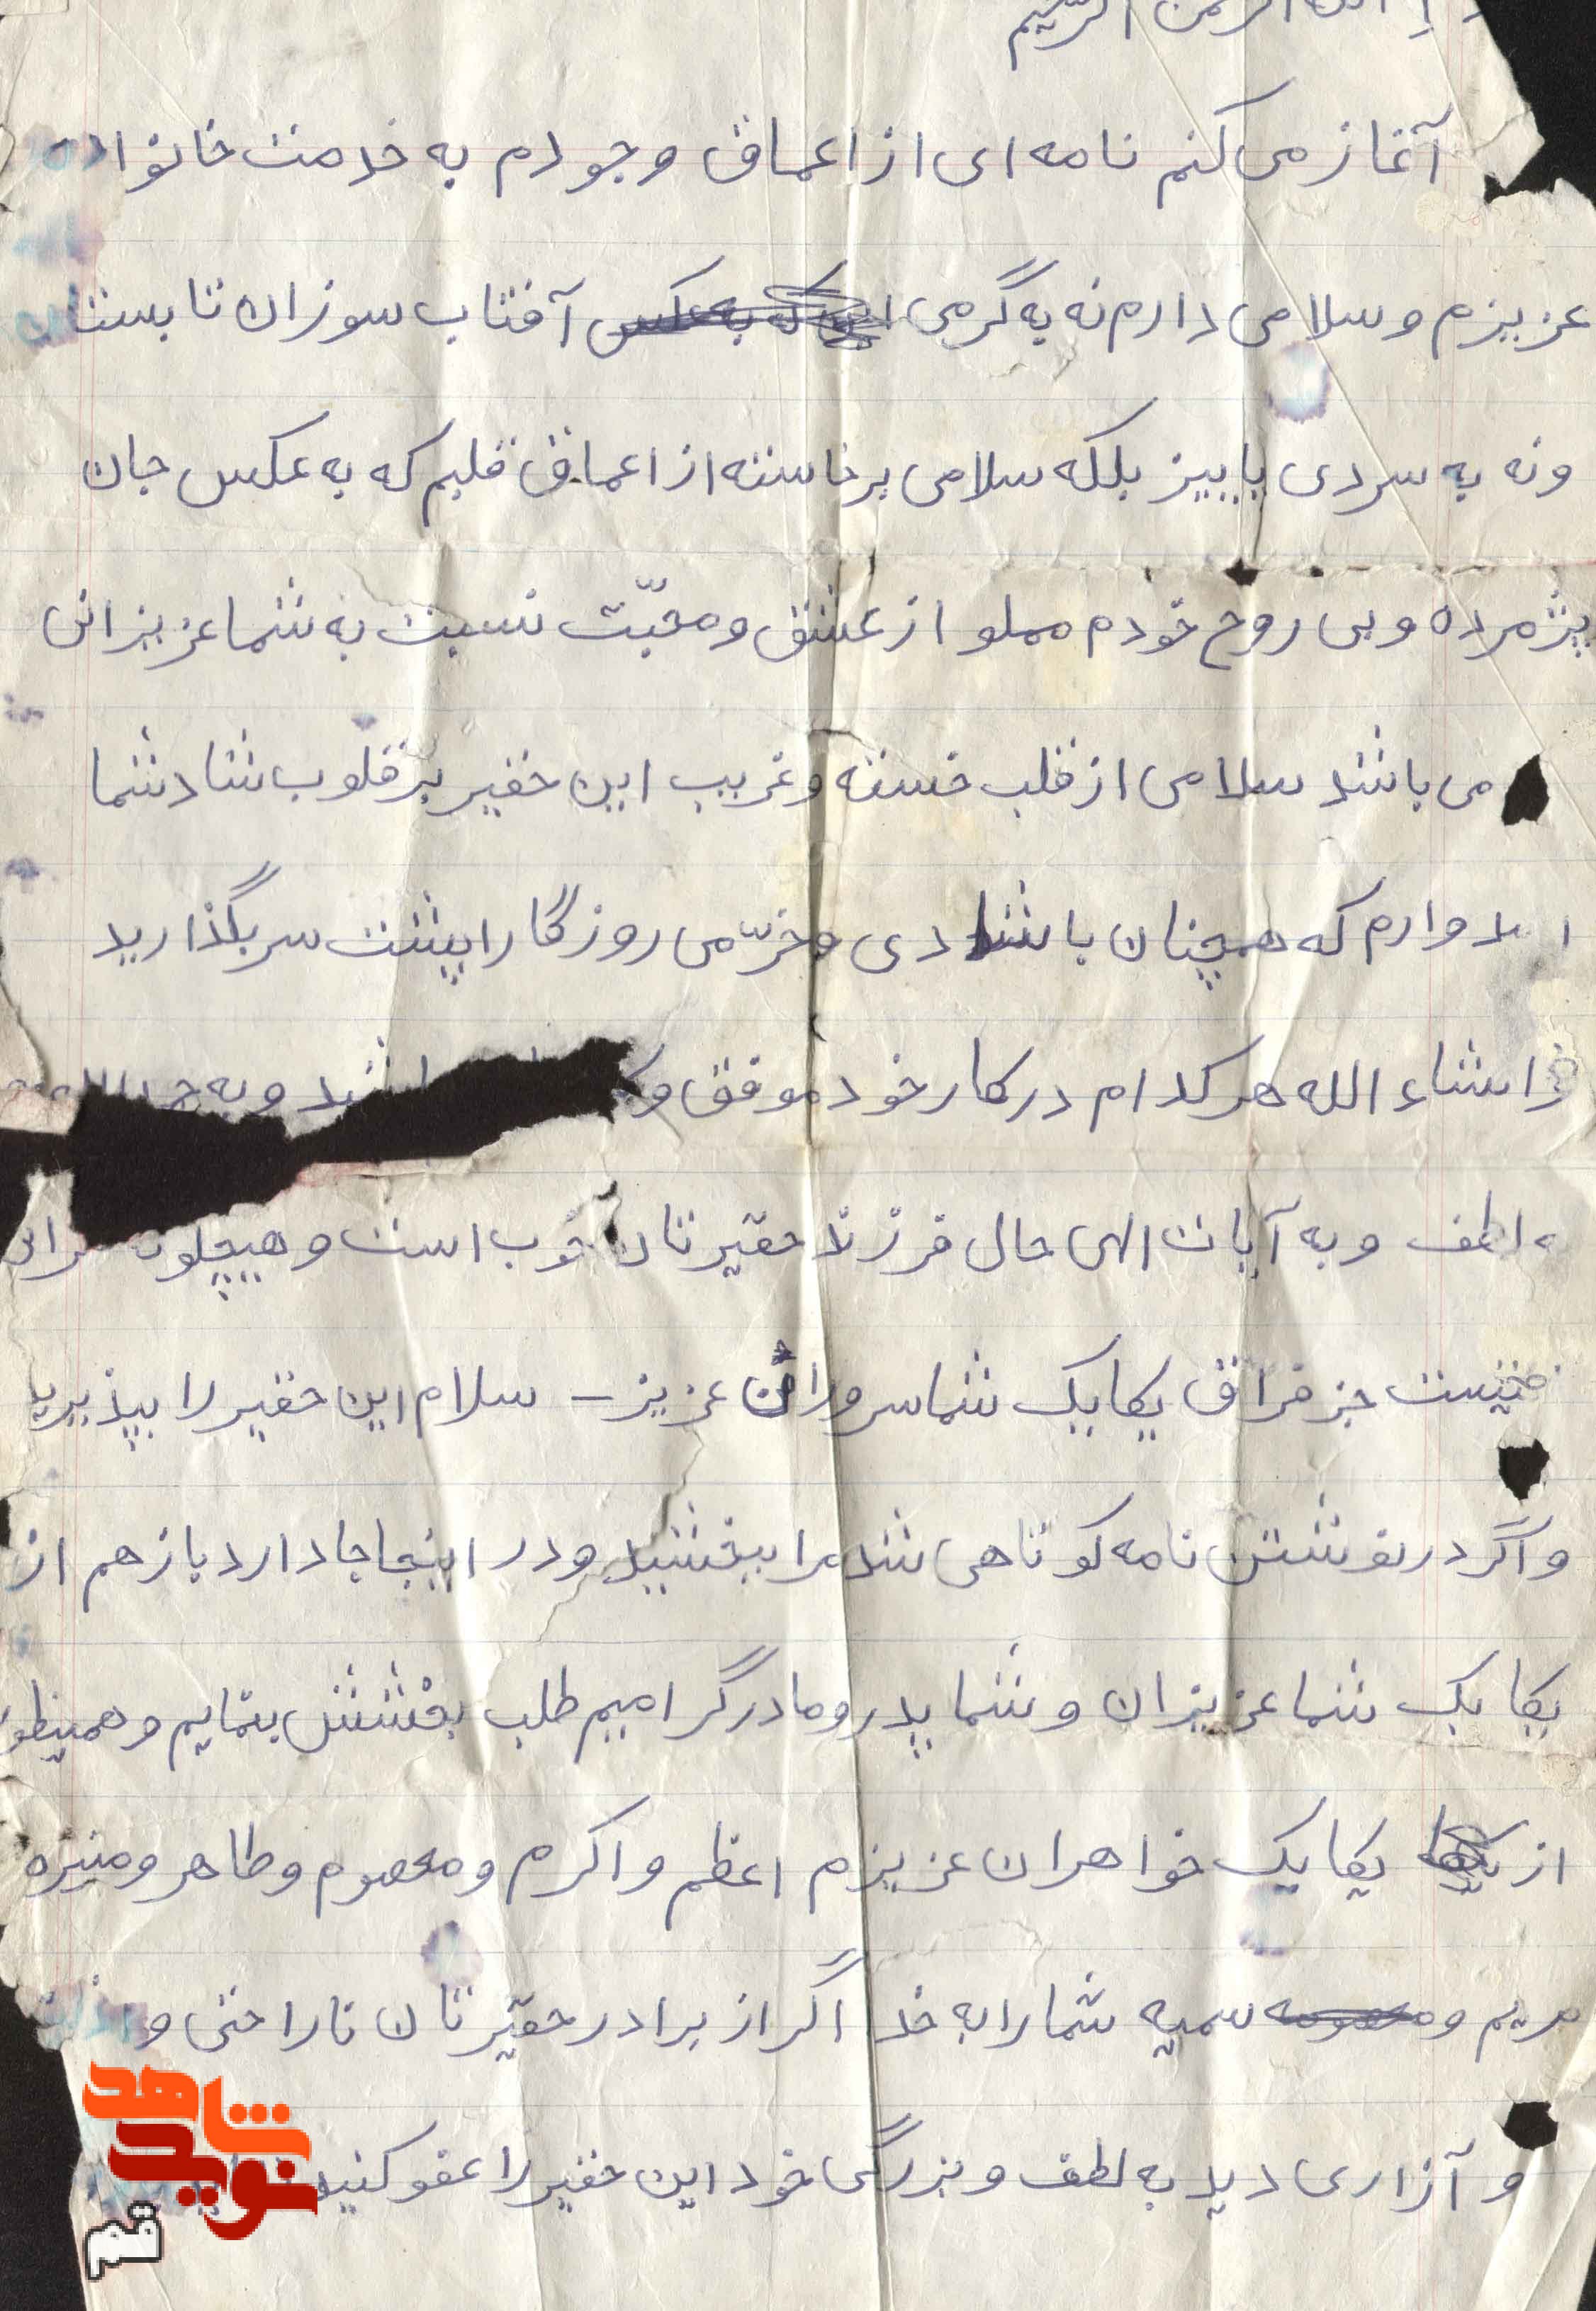 الرحمن الرحیم
آغاز می کنم نامه ای از اعماق وجودم به خدمت خانواده
عزیزم و سلامی دارم نه به گرمی آفتاب سوزان تابستان
و نه به سردی پاییز بلکه سلامی برخاسته از اعماق قلبم که به عکس جان
پژمرده و بی روح خودم مملو از عشق و محبّت نسبت به شما عزیزانی
می باشد سلامی از قلب خسته و غریب این حقیر بر قلوب شاد شما
وارم که همچنان با شادی و خرّمی روزگار را پشت سر بگذارید
انشاء الله هر کدام در کار خود موفق و باشید و به
لطف و به آیات الهی حال فرزند حقیرتان خوب است و هیچگونه
نیست جز فراق یکایک شما سروران عزیز - سلام این حقیر را بپذیرید
و اگر در نوشتن نامه کوتاهی شد مرا ببخشید و در اینجا جا دارد باز هم از
یکایک شما عزیزان و شما پدر و مادر گرامیم طلب بخشش بنمایم و همینطور
از یکایک خواهران عزیزم اعظم و اکرم و معصوم و طاهر و منیژه
مریم و معصومه سمیه شما را به خدا اگر از برادر حقیرتان ناراحتی و
و آزاری دید به لطف و بزرگی خود این حقیر را عفو کنید
شاهد
نوید
قم